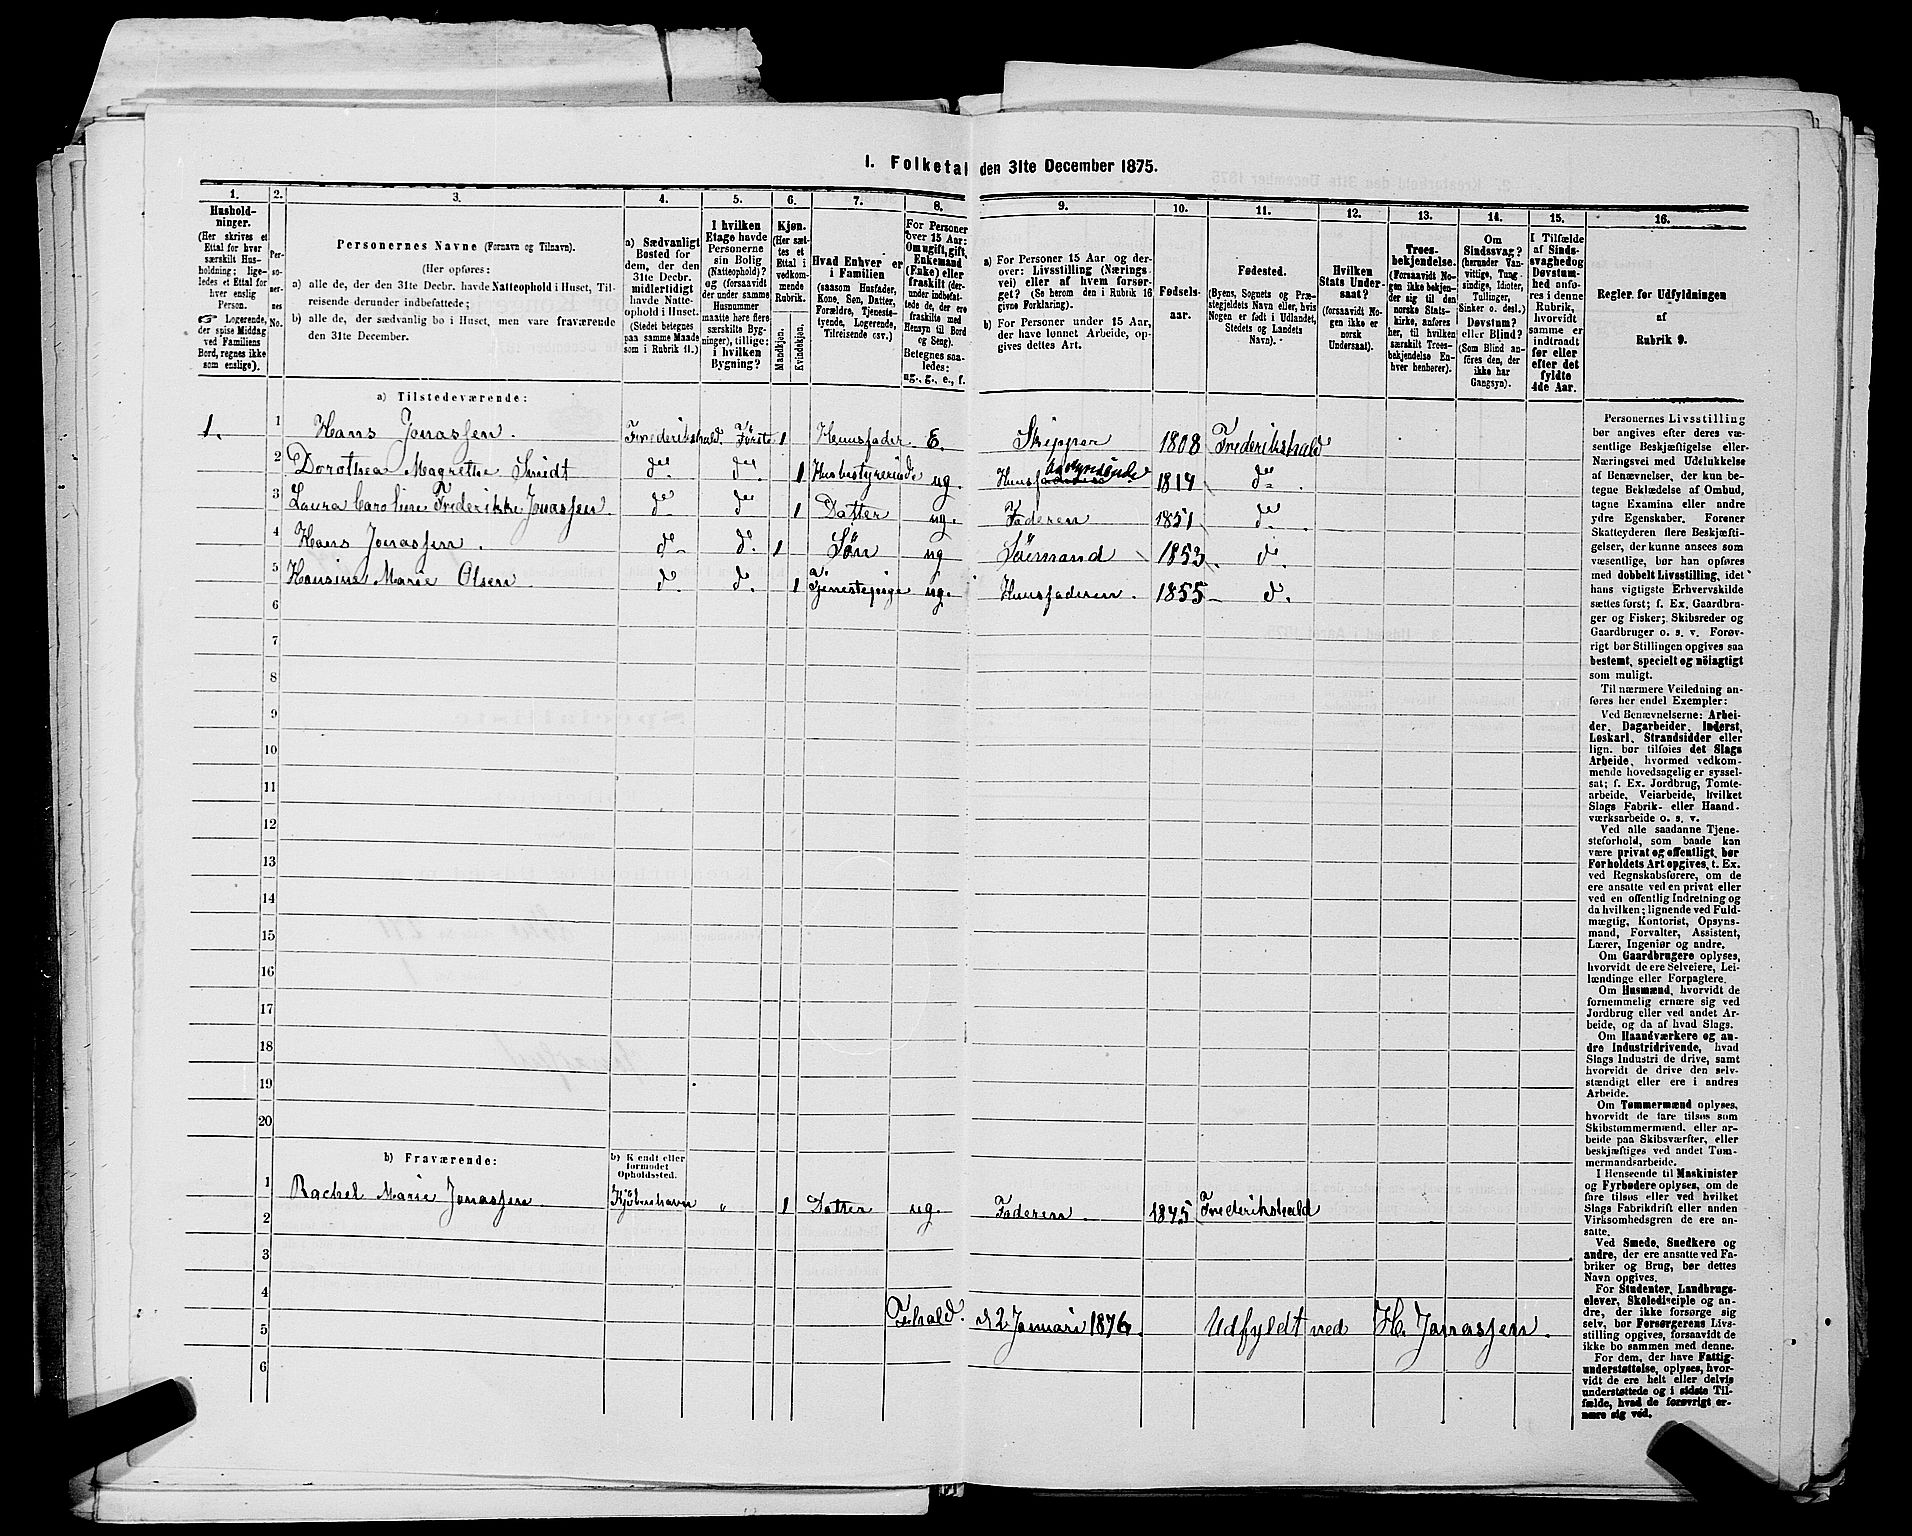 1. Folketal den 31te December 1875.
1. 2. 3. 4. 5. 6. 7. 8. 9. 10. 11. 12. 13. 14. 15. 16.
Hushold-
ninger.
(Her skrives et
Ettal for hver
særskilt Hus-
holdning; lige-
ledes et Ettal for
hver enslig
Person.
☞ Logerende,
der spise Middag
ved Familiens
Bord, regnes ikke
som enslige).
Per-
so-
ner-
nes
No.
Personernes Navne (Fornavn og Tilnavn).
(Her opføres:
a) alle de, der den 31te Decbr. havde Natteophold i Huset, Til-
reisende derunder indbefattede;
b) alle de, der sædvanlig bo i Huset, men vare fraværende
den 31te December.
a) Sædvanligt
Bosted for
dem, der den
31te Decbr.
midlertidigt
havde Natte-
ophold i Huset.
(Stedet betegnes
paa samme Maade
som i Rubrik 11.)
I hvilken
Etage havde
Personerne
sin Bolig
(Natteophold)?
og (forsaavidt
der under samme
Husnummer
maatte høre flere
særskilte Byg-
ninger), tillige:
i hvilken
Bygning?
Kjøn.
(Her sæt-
tes et
Ettal i
vedkom-
mende
Rubrik.
Mandkjøn.
Kvindekjøn.
Hvad Enhver er
i Familien
(saasom Husfader,
Kone, Søn, Datter,
Forældre, Tjeneste-
tyende, Logerende,
Tilreisende osv.)
For Personer
over 15 Aar:
Om ugift, gift,
Enkemand
(Enke) eller
fraskilt (der-
under indbefat-
tede de, der ere
fraskilte med
Hensyn til Bord
og Seng).
Betegnes saa-
ledes:
ug., g., e., f.
a) For Personer 15 Aar og der-
over: Livsstilling (Nærings-
vei) eller af hvem forsør-
get? (Se herom den i Rubrik 16
givne Forklaring).
b) For Personer under 15 Aar,
der have lønnet Arbeide, op-
gives dettes Art.
Fødsels-
aar.
Fødested.
(Byens, Sognets og Præ-
stegjeldets Navn eller, hvis
Nogen er født i Udlandet,
Stedets og Landets
Navn).
Hvilken
Stats Under-
saat?
(forsaavidt No-
gen ikke er
norsk
Undersaat).
Troes-
bekjendelse.
(Forsaavidt No-
gen ikke bekjen-
der sig til den
norske Stats-
kirke, anføres
her, til hvilken
særskilt Troes-
bekjendelse En-
hver henhører).
Om
Sindssvag?
(herunder Van-
vittige, Tung-
sindige, Idioter,
Tullinger,
Sinker o. desl.)
Døvstum?
eller Blind?
(Som Blind an-
føres den, der
ikke har
Gangsyn).
I Tilfælde
af Sinds-
svaghed og
Døvstum-
hed anfø-
res i denne
Rubrik,
hvorvidt
samme er
indtraadt
før eller
efter det
fyldte
4de Aar.
Regler for Udfyldningen
af
Rubrik 9.
a) Tilstedeværende:
1. 1 Hans Jonassen. Frederikshald. Første 1 Huusfader E. Skipper 1808 Frederikshald
2 Dorothea Magrethe Smidt do. do. 1 Husbestyrerinde ug. 1819 do.
3 Laura Caroline Frederikke Jonassen do do 1 Datter ug. Faderen 1851 do
4 Hans Jonassen. do d. 1 Søn ug Sømand 1853 d.
5 Hansine Marie Olsen d. d. 1 Tjenestepige ug. Huusfaderen. 1855 d.
6
7
8
9
10
11
12
13
14
15
16
17
18
19
20
b) Fraværende:
b) Kjendt eller
formodet
Opholdssted.
1 Rachel Marie Jonassen Kjøbenhavn " 1 Datter ug. Faderen. 1845 Frederikshald
2
3
4
Fhald. d 2 Januari 1876. Udfyldt ved H. Jonassen.
5
6
Personernes Livsstilling
bør angives efter deres væ-
sentlige Beskjæftigelse eller
Næringsvei med Udelukkelse
af Benævnelser, der kun be-
tegne Beklædelse af Ombud,
tagne Examina eller andre
ydre Egenskaber. Forener
Skatteyderen flere Beskjæfti-
gelser, der kunne ansees som
væsentlige, bør han opføres
med dobbelt Livsstilling, idet
hans vigtigste Erhvervskilde
sættes først; f. Ex. Gaardbru-
ger og Fisker; Skibsreder og
Gaardbruger o. s. v. Forøv-
rigt bør Stillingen opgives saa
bestemt, specielt og nöiagtigt
som muligt.
Til nærmere Veiledning an-
føres her endel Exempler:
Ved Benævnelserne: Arbei-
der, Dagarbeider, Inderst,
Løskarl, Strandsidder eller
lign. bør tilføies det Slags
Arbeide, hvormed vedkom-
mende hovedsagelig er syssel-
sat; f. Ex. Jordbrug, Tomte-
arbeide, Veiarbeide, hvilket
Slags Fabrik- eller Haand-
værksarbeide o. s. v.
Ved alle saadanne Tjene-
steforhold, som baade kan
være privat og offentligt, bør
Forholdets Art opgives, t. Ex.
ved Regnskabsførere, om de
ere ansatte ved en privat eller
ved en offentlig Indretning og
da hvilken; lignende ved Fuld-
mægtig, Kontorist, Opsyns-
mand, Forvalter, Assistent,
Lærer, Ingeniør og andre.
Om Gaardbrugere oplyses,
hvorvidt de ere Selveiere, Lei-
lændinge eller Forpagtere.
Om Husmænd, hvorvidt de
fornemmelig ernære sig ved
Jordbrug eller ved andet Ar-
beide, og da af hvad Slags.
Om Haandværkere og an-
dre Industridrivende, hvad
Slags Industri de drive, samt
hvorvidt de drive den selv-
stændigt eller ere i andres
Arbeide.
Om Tømmermænd oplyses,
hvorvidt de fare tilsøs som
Skibstømmermænd, eller ar-
beide paa Skibsværfter, eller
beskjæftiges ved andet Tøm-
mermandsarbeide.
I Henseende til Maskinister
og Fyrbødere oplyses, om de
fare tilsøs eller ved hvilket
Slags Fabrikdrift eller anden
Virksomhedsgren de ere an-
satte.
Ved Smede, Snedkere og
andre, der ere ansatte ved Fa-
briker og Brug, bør dettes
Navn opgives.
For Studenter, Landbrugs-
elever, Skoledisciple og an-
dre, der ikke forsørge sig
selv, bør Forsørgerens Livs-
stilling opgives, forsaavidt de
ikke bo sammen med denne.
For dem, der have Fattig-
understøttelse, oplyses, hvor-
vidt de ere helt eller delvis
understøttede og i sidste Til-
fælde, hvad de forøvrigt er-
nære sig ved.